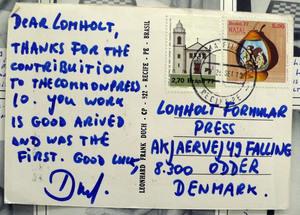 DEAR LOMHOLT,
THANKS FOR THE
CONTRIBUITION
TO THE COMMONPRESS
10. YOU WORK
IS GOOD ARIVED
AND WAS THE
FIRST. GOOD LUCK,
LEONHARD FRANK DUCH - CP - 922 - RECIFE - PE - BRASIL
2,70 BRASIL 77
BRASIL 77
NATAL
5,00
LOMHOLT FORMULAR
PRESS
AKJAERVEJ 49 FALLING
8.300 ODDER
DENMARK.